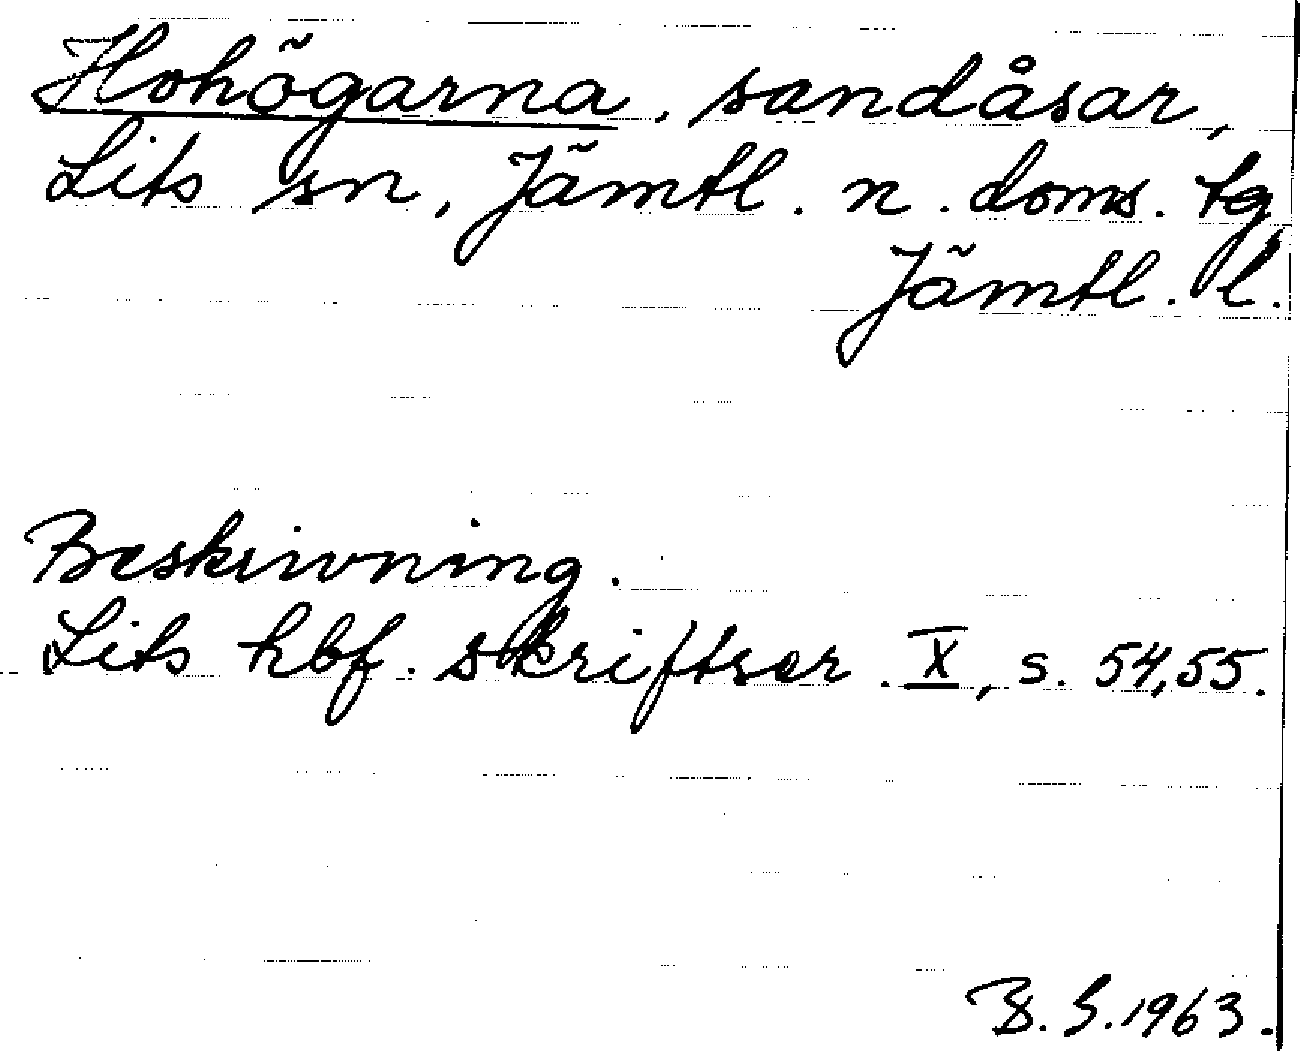 Hohögarna, sandåsar,
Lits sn, Jämtl. n. doms. tg
Jämtl. l.
Beskrivning.
Lits hbf. skriftser. X, s. 54,55.
B. S. 1963.